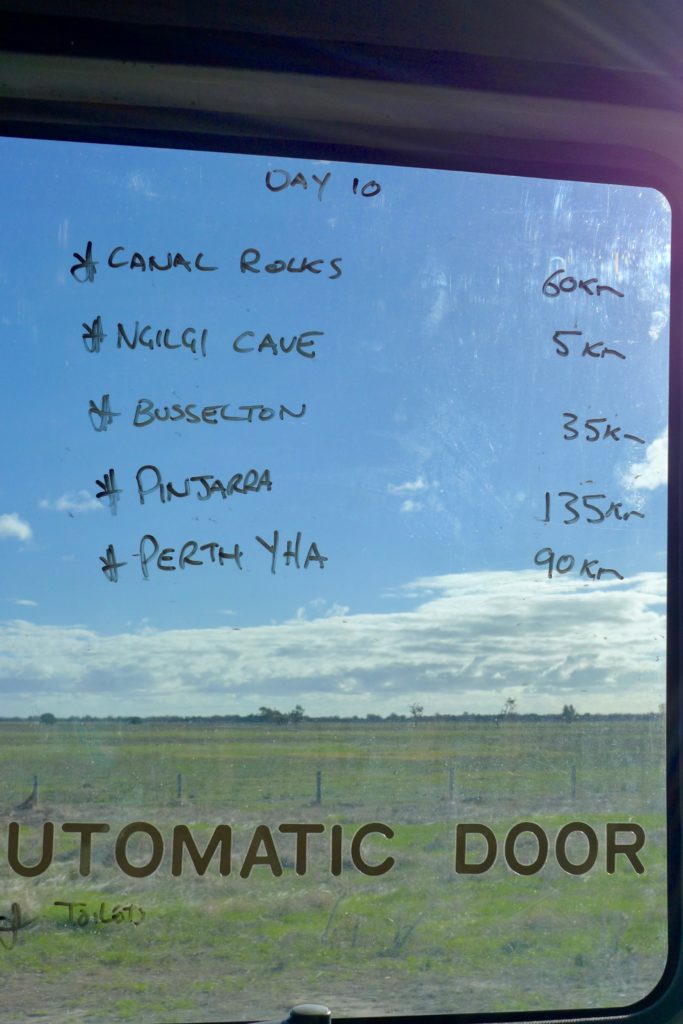 DAY 10
* CANAL ROCKS 60Km
* NGILGI CAVE 5Km
* BUSSELTON 35Km
* PINJARRA 135Km
* PERTH YHA 90Km
UTOMATIC DOOR
* Toilets